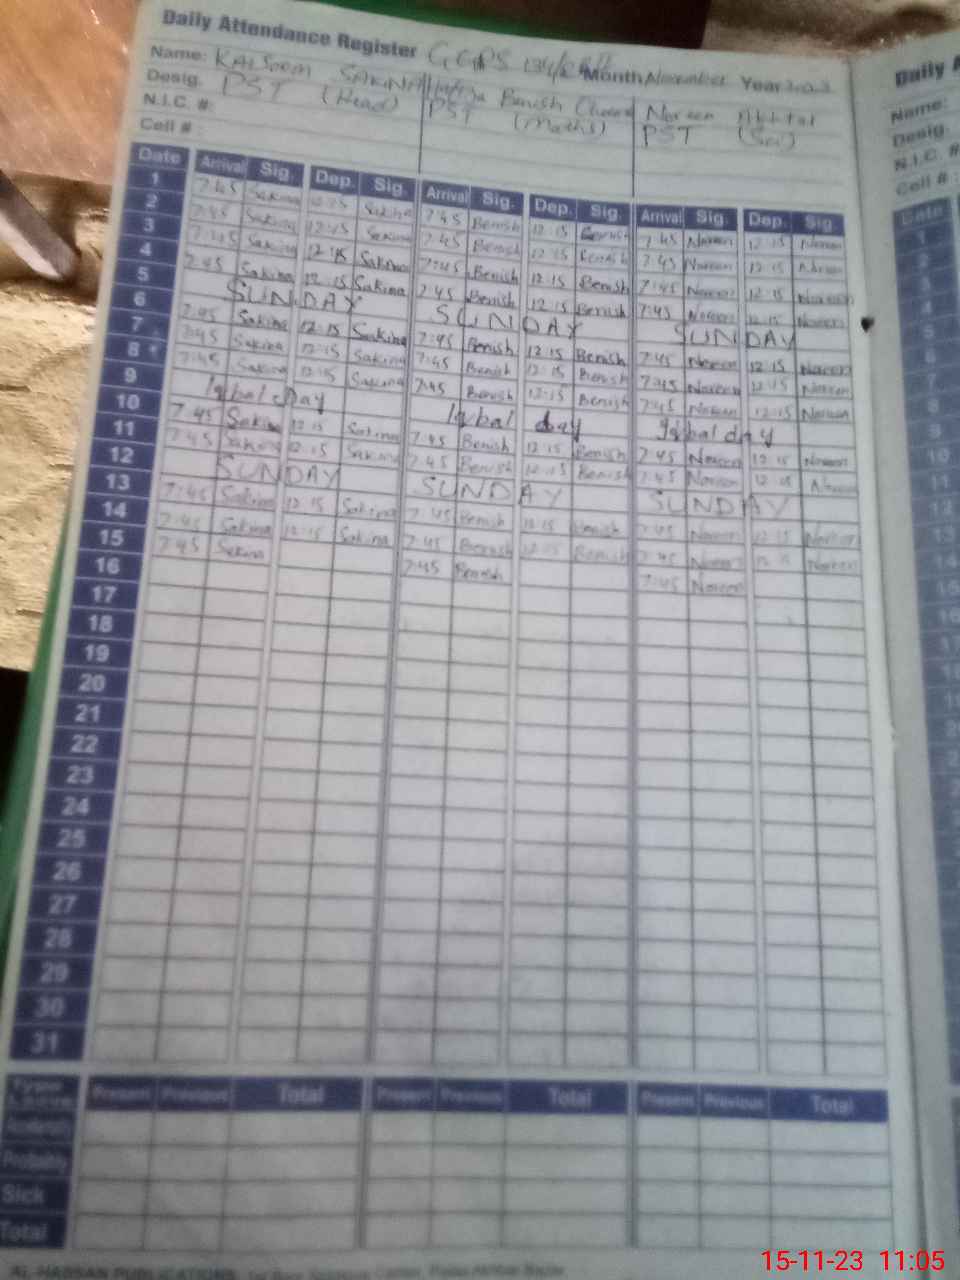 Daily Attendance Register GGPS Month November Year 2023
Name: KALSOOM SAKINA Benish Noreen Akhtar
Desig. PST (Head) PST (Maths) PST (Sci)
N.I.C. #:
Cell # :
Date Arrival Sig. Dep. Sig. Arrival Sig. Dep. Sig. Arrival Sig. Dep. Sig
1 7:45 Sakina 12:15 Sakina 7:45 Benish 12:15 Benish 7:45 Noreen 12:15 Noreen
2 7:45 Sakina 12:15 Sakina 7:45 Benish 12:15 Benish 7:45 Noreen 12:15 Noreen
3 7:45 Sakina 12:15 Sakina 7:45 Benish 12:15 Benish 7:45 Noreen 12:15 Noreen
4 7:45 Sakina 12:15 Sakina 7:45 Benish 12:15 Benish 7:45 Noreen 12:15 Noreen
5 SUNDAY SUNDAY SUNDAY
6 7:45 Sakina 12:15 Sakina 7:45 Benish 12:15 Benish 7:45 Noreen 12:15 Noreen
7 7:45 Sakina 12:15 Sakina 7:45 Benish 12:15 Benish 7:45 Noreen 12:15 Noreen
8 7:45 Sakina 12:15 Sakina 7:45 Benish 12:15 Benish 7:45 Noreen 12:15 Noreen
9 Iqbal day Iqbal day Iqbal day
10 7:45 Sakina 12:15 Sakina 7:45 Benish 12:15 Benish 7:45 Noreen 12:15 Noreen
11 7:45 Sakina 12:15 Sakina 7:45 Benish 12:15 Benish 7:45 Noreen 12:15 Noreen
12 SUNDAY SUNDAY SUNDAY
13 7:45 Sakina 12:15 Sakina 7:45 Benish 12:15 Benish 7:45 Noreen 12:15 Noreen
14 7:45 Sakina 12:15 Sakina 7:45 Benish 12:15 Benish 7:45 Noreen 12:15 Noreen
15 7:45 Sakina 7:45 Benish 7:45 Noreen
16
17
18
19
20
21
22
23
24
25
26
27
28
29
30
31
Present Previous Total Present Previous Total Present Previous Total
Sick
Total
AL-HASSAN PUBLICATIONS
Daily
Name:
Desig.
N.I.C. #
Cell # :
Date
15-11-23 11:05